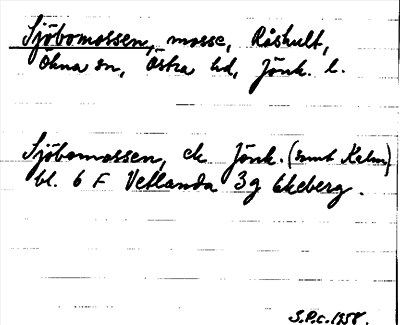 Sjöbomossen, mosse, Råshult,
Ökna sn, Östra hd, Jönk. l.
Sjöbomossen, ek Jönk. (samt Kalm)
bl. 6 F Vetlanda 3g Ekeberg.
S.P.c. 1958.